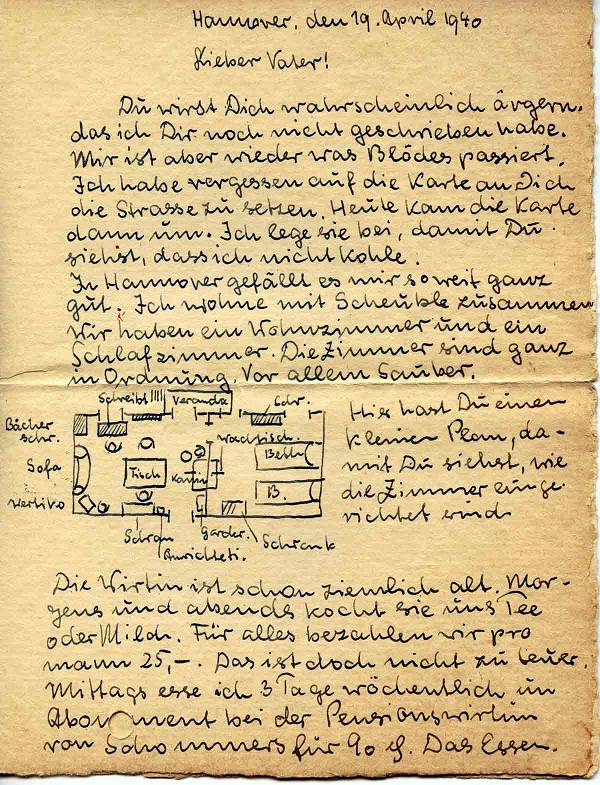 Hannover, den 19. April 1940
Lieber Vater!
Du wirst Dich wahrscheinlich ärgern.
das ich Dir noch nicht geschrieben habe.
Mir ist aber wieder was Blödes passiert.
Ich habe vergessen auf die Karte an Dich
die Strasse zu setzen. Heute kam die Karte
dann um. Ich lege sie bei, damit Du
siehst, dass ich nicht kohle.
In Hannover gefällt es mir soweit ganz
gut. Ich wohne mit Scheuble zusammen
wir haben ein Wohnzimmer und ein
Schlafzimmer. Die Zimmer sind ganz
in Ordnung. Vor allem Sauber.
Schreibt. Veranda
Bücher
schr.
Waschtisch.
Sofa
Tisch
Kamin
Bett
B.
Vertiko
Schran
Garder.
Schrank
Anrichteti.
Hier hast Du einen
kleinen Plan, da-
mit Du siehst, wie
die Zimmer einge
richtet sind
Die Wirtin ist schon ziemlich alt. Mor-
gens und abends kocht sie uns Tee
oder Milch. Für alles bezahlen wir pro
mann 25,-. Das ist doch nicht zu teuer.
Mittags esse ich 3 Tage wöchentlich im
Abonoment bei der Pensionswirtin
von Schommers für 90 Das Essen.